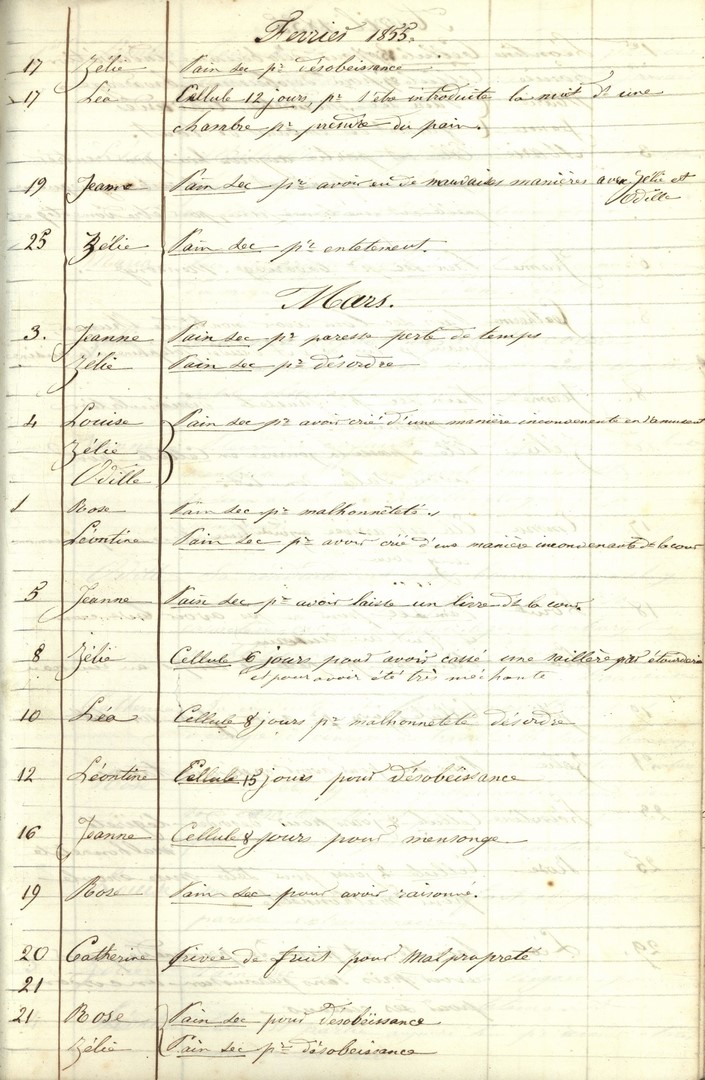 Fevrier 1855.
17 Zélie Pain sec pr désobeissance
17 Léa Cellule 12 jours, pr s'etre introduite la nuit ds une
chambre pr prendre du pain.
19 Jeanne Pain sec pr avoir eu de mauvaises manières avec Zélie et
Odille
25 Zélie Pain sec pr entetement.
Mars.
3. Jeanne Pain sec pr paresse perte de temps
Zélie Pain sec pr désordre
4 Louise Pain sec pr avoir crié d'une manière inconvenente en s'amusant
Zélie
Odille
1 Rose Pain sec pr malhonnêteté.
Léontine Pain sec pr avoir crié d'une manière inconvenante ds la cour
5 Jeanne Pain sec pr avoir laissé un livre ds la cour.
8 Zélie Cellule 6 jours pour avoir cassé une saillère par étourderie
et pour avoir été très méchante
10 Léa Cellule 8 jours pr malhonneteté désordre
12 Léontine Cellule 15 jours pour désobéissance
16 Jeanne Cellule 8 jours pour mensonge
19 Rose Pain sec pour avoir raisonné.
20 Catherine privée de fruit pour malpropreté
21
21 Rose Pain sec pour désobëissance
Zélie Pain sec pr désobeissance